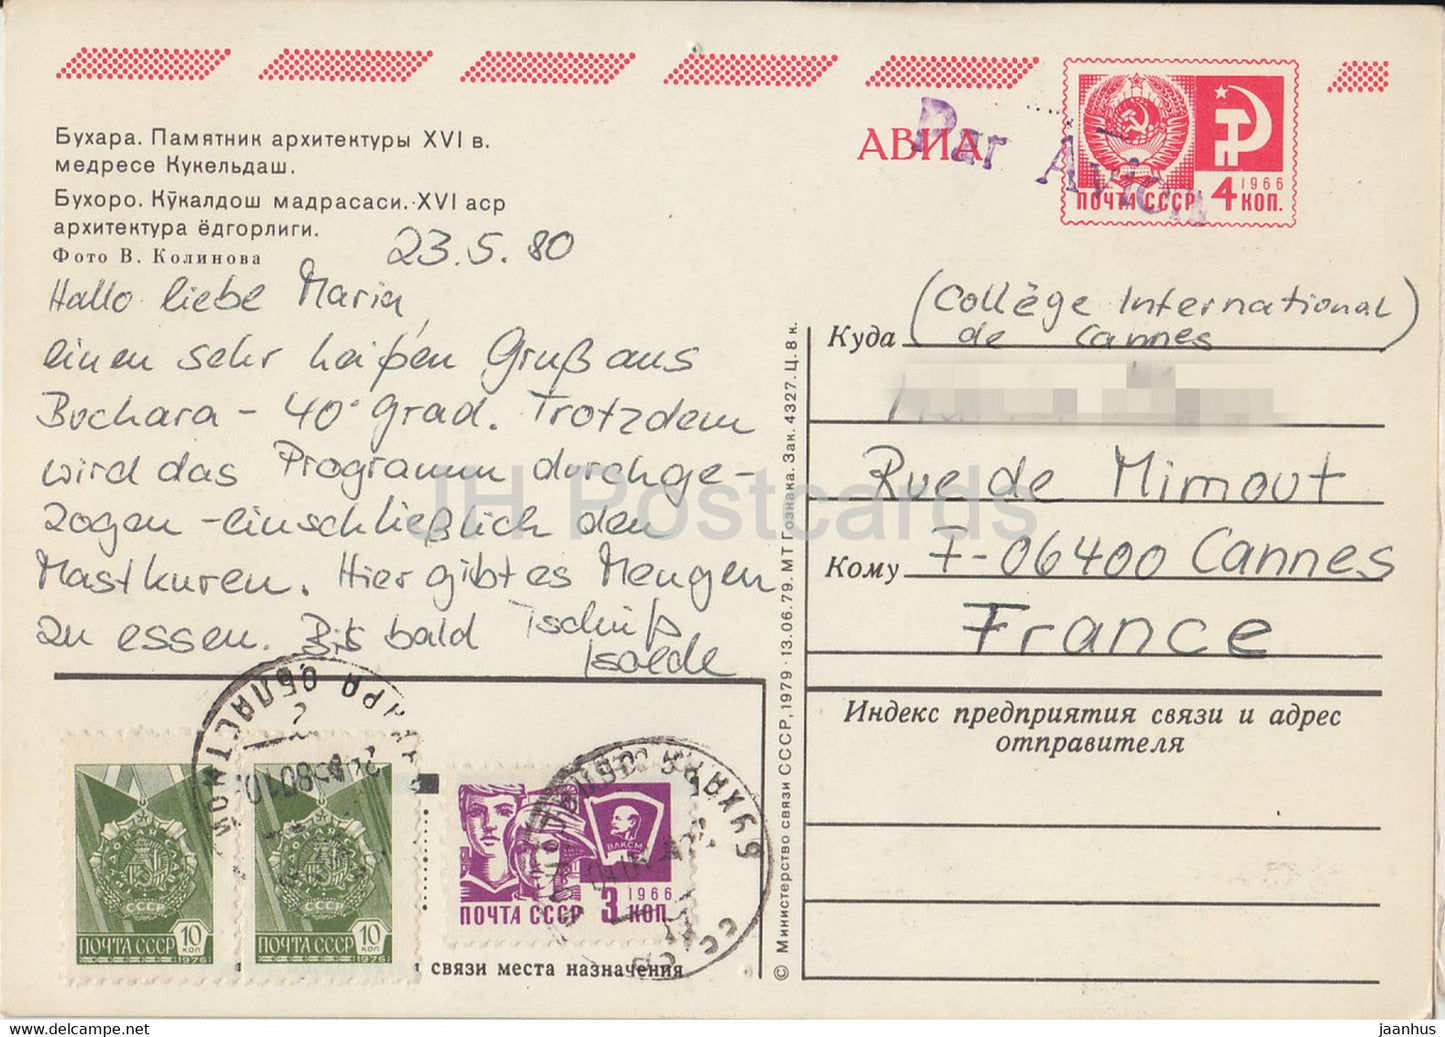 Бухара. Памятник архитектуры XVI в.
медресе Кукельдаш.
Бухоро. Кўкалдош мадрасаси. XVI аср
архитектура ёдгорлиги.
Фото В. Колинова
23.5.80
Hallo liebe Maria,
einen sehr heißen Gruß aus
Buchara - 40° Grad. Trotzdem
wird das Programm durchge-
zogen - einschließlich den
Mastkuren. Hier gibt es Mengen
zu essen. Bis bald Tschüß
Isolde
АВИА
Par Avion
ПОЧТА СССР 4 КОП. 1966
Куда (Collège International)
de Cannes
Rue de Mimout
Кому F-06400 Cannes
France
Индекс предприятия связи и адрес
отправителя
© Министерство связи СССР, 1979 · 13.06.79. МТ Гознака. Зак. 4327. Ц. 8 к.
СССР
ПОЧТА СССР 10 КОП
1976
СССР
ПОЧТА СССР 10 КОП
1976
ВЛКСМ
1966
ПОЧТА СССР 3 КОП.
связи места назначения
БУХАРА
СССР
JH Postcards
hippostcard.com
jaanhus